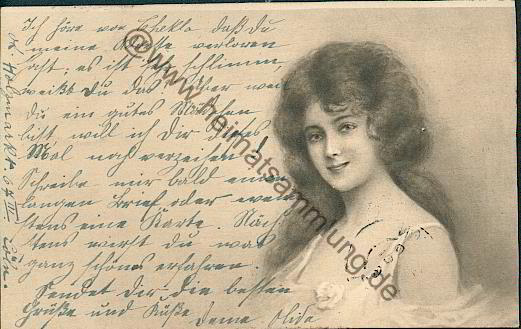 Ich höre von Thekla daß du
meine Adresse verloren
hast; es ist sehr schlimm,
weißt du das? Aber weil
du ein gutes Mädchen
bist, will ich dir dieses
Mal noch verzeihen!
Schreibe mir bald einen
langen Brief oder wenig
stens eine Karte. Näch
stens wirst du was
ganz schönes erfahren.
Sendet dir die besten
Grüße und Küße
deine
K. Holzmarkt 67 III Cöln.
© www.heimatsammlung.de